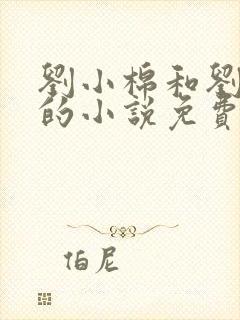 劉小棉和劉
的小說免費
伯尼